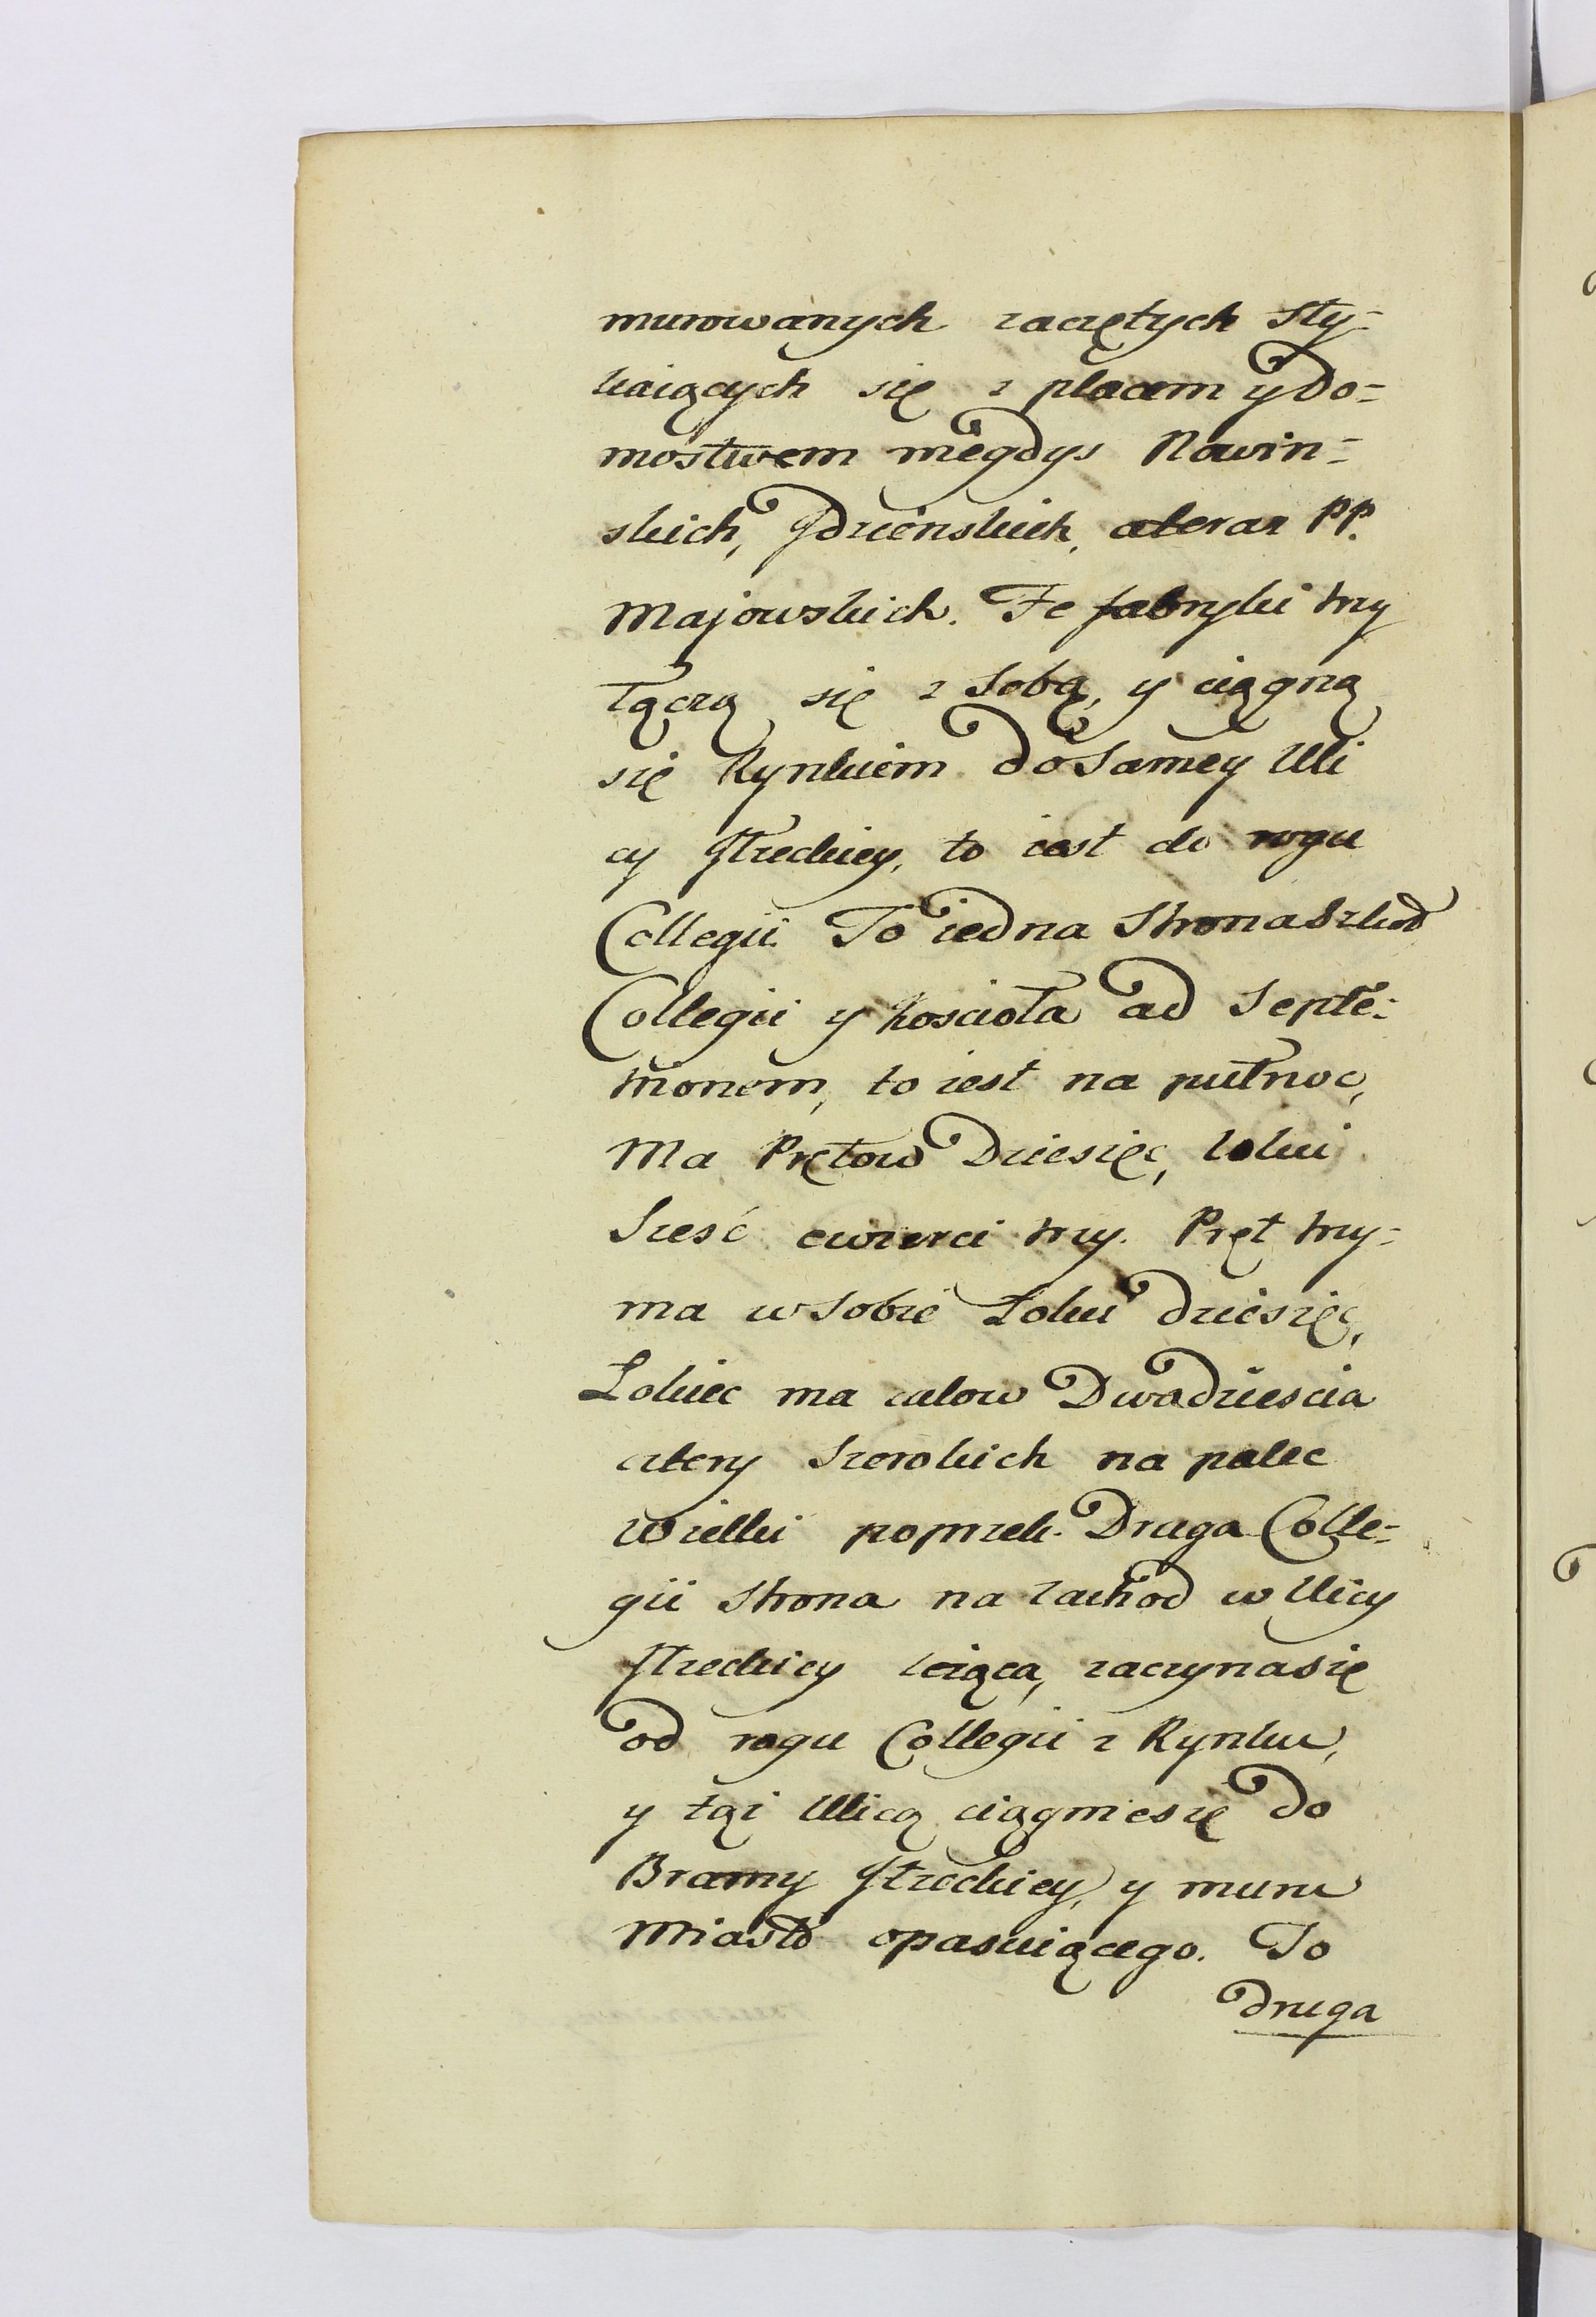 murowanych zaczętych sty-
kaiących się z placem y do-
mostwem niegdys Nowin-
skich, Jdzienskich, a teraz PP.
Majowskich. Te fabryki trzy
łączą się z sobą, y ciągną
się Rynkiem do Samey Uli
cy Grodzkiey, to iest do rogu
Collegii. To iedna Strona Szkoł
Collegii y Koscioła ad Septe-
trionem, to iest na pułnoc,
Ma Prętow Dziesięc, łokci
Szesć cwierci trzy. Pręt trzy-
ma w sobie Łokci dziesięc,
Łokiec ma calow Dwadziescia
cztery Szerokich na palec
wielki poprzek. Druga Colle-
gii strona na zachod w Ulicy
leżąca, zaczyna się
od rogu Collegii z Rynku,
y tąż Ulicą ciągnie się do
Bramy y muru
Miasto opasuiącego. To
druga